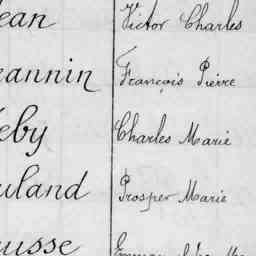 ean Victor Charles
eannin François Pierre
eby Charles Marie
uland Prosper Marie
usse